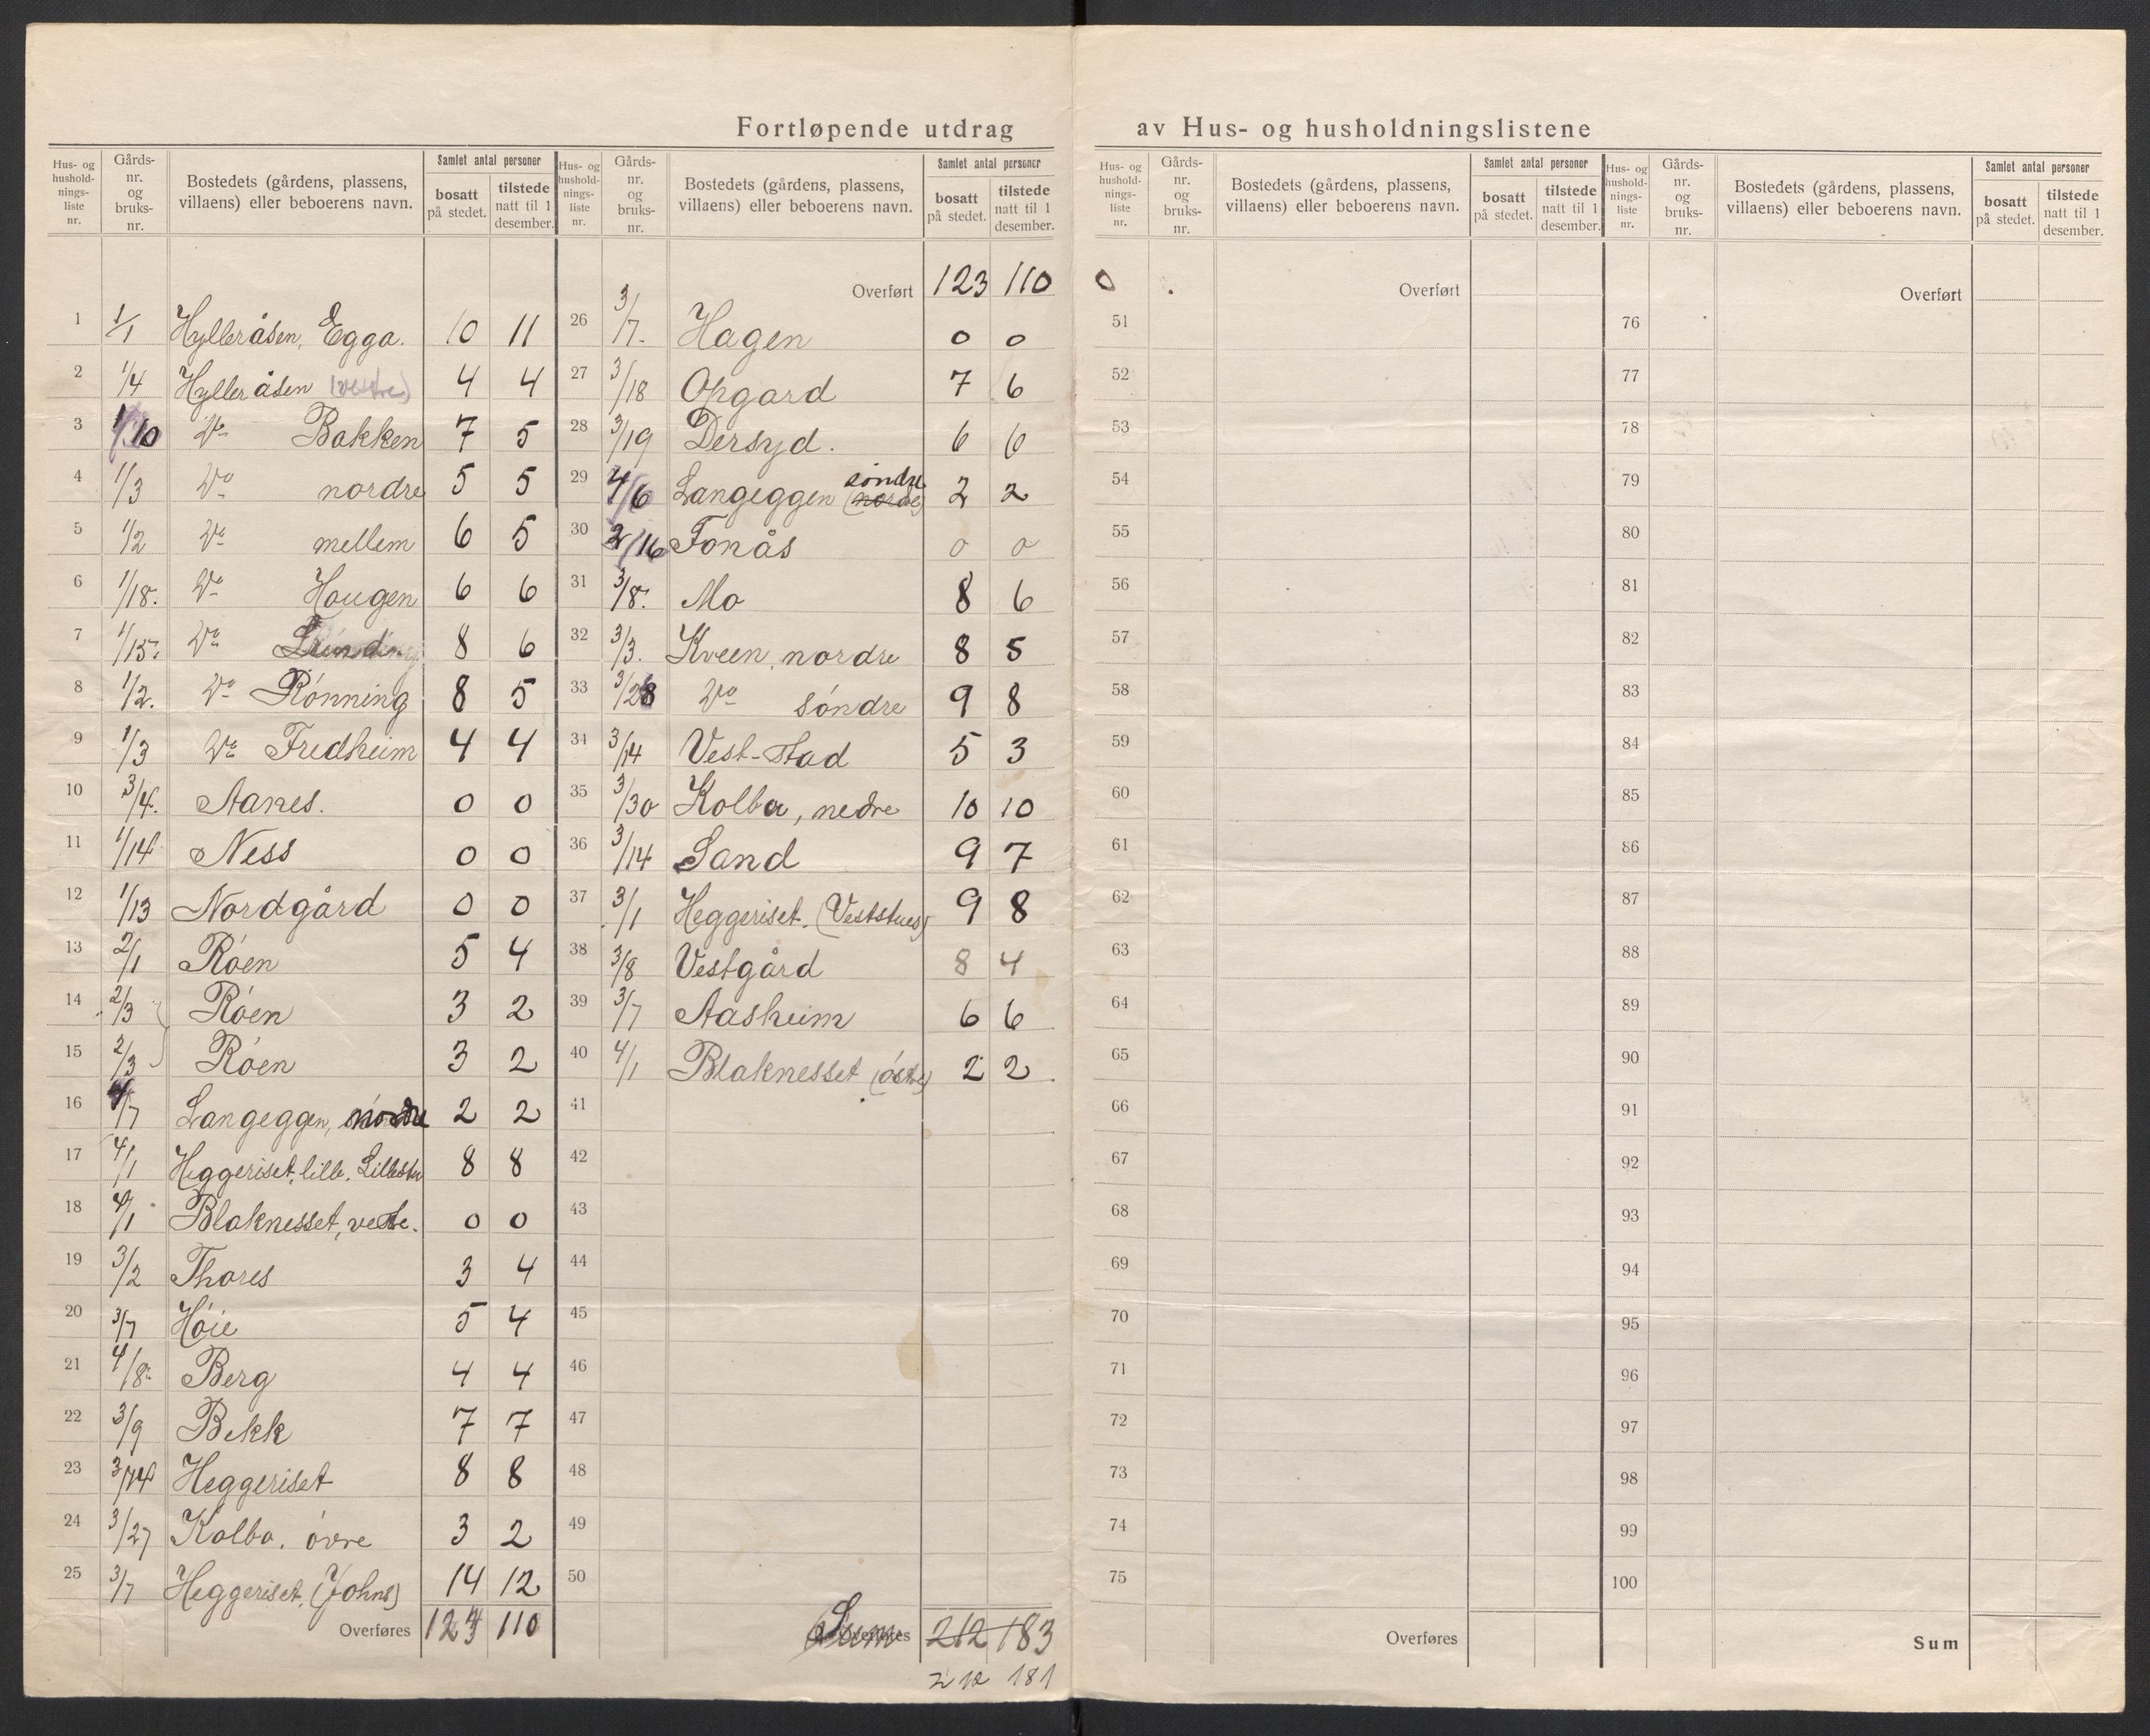 Fortløpende utdrag av Hus- og husholdningslistene
Hus- og husholdningsliste nr. | Gårds-nr. og bruks-nr. | Bostedets (gårdens, plassens, villaens) eller beboerens navn. | Samlet antal personer | bosatt på stedet. | tilstede natt til 1 desember.
1 1/1 Hylleråsen, Egga. 10 11
2 1/4 Hylleråsen (vestre) 4 4
3 1/10 Do Bakken 7 5
4 1/3 Do nordre 5 5
5 1/2 Do mellem 6 5
6 1/18. Do Haugen 6 6
7 1/15. Do 8 6
8 1/2. Do Rónning 8 5
9 1/3 Do Fredheim 4 4
10 3/4. Aanes. 0 0
11 1/14 Ness 0 0
12 1/13 Nordgård 0 0
13 2/1 Róen 5 4
14 2/3 Róen 3 2
15 2/3 Róen 3 2
16 4/7 Langeggen, nordre 2 2
17 4/1 Heggeriset, lille. Lillestu 8 8
18 4/1 Blaknesset, vestre. 0 0
19 3/2 Thores 3 4
20 3/7 Hóie 5 4
21 4/8. Berg 4 4
22 3/9 Bekk 7 7
23 3/14 Heggeriset 8 8
24 3/27 Kolbo. óvre 3 2
25 3/7 Heggeriset. (Johns) 14 12
Overføres 123 110
Hus- og husholdningsliste nr. | Gårds-nr. og bruks-nr. | Bostedets (gårdens, plassens, villaens) eller beboerens navn. | Samlet antal personer | bosatt på stedet. | tilstede natt til 1 desember.
Overført 123 110
26 3/7. Hagen 0 0
27 3/18 Opgard 7 6
28 3/19 Dersyd. 6 6
29 4/6 Langeggen (nordre) søndre 2 2
30 3/16 Fonås 0 0
31 3/8. Mo 8 6
32 3/3. Kveen, nordre 8 5
33 3/28 Do sóndre 9 8
34 3/14 Vest-stad 5 3
35 3/30 Kolbo, nedre 10 10
36 3/14 Sand 9 7
37 3/1 Heggeriset. (Veststues) 9 8
38 3/8 Vestgård 8 4
39 3/7 Aasheim 6 6
40 4/1 Blaknesset (óstre) 2 2
41
42
43
44
45
46
47
48
49
50
Overføres Sum 212 183
212 181
Hus- og husholdningsliste nr. | Gårds-nr. og bruks-nr. | Bostedets (gårdens, plassens, villaens) eller beboerens navn. | Samlet antal personer | bosatt på stedet. | tilstede natt til 1 desember.
0 Overført
51
52
53
54
55
56
57
58
59
60
61
62
63
64
65
66
67
68
69
70
71
72
73
74
75
Overføres
Hus- og husholdningsliste nr. | Gårds-nr. og bruks-nr. | Bostedets (gårdens, plassens, villaens) eller beboerens navn. | Samlet antal personer | bosatt på stedet. | tilstede natt til 1 desember.
Overført
76
77
78
79
80
81
82
83
84
85
86
87
88
89
90
91
92
93
94
95
96
97
98
99
100
Sum